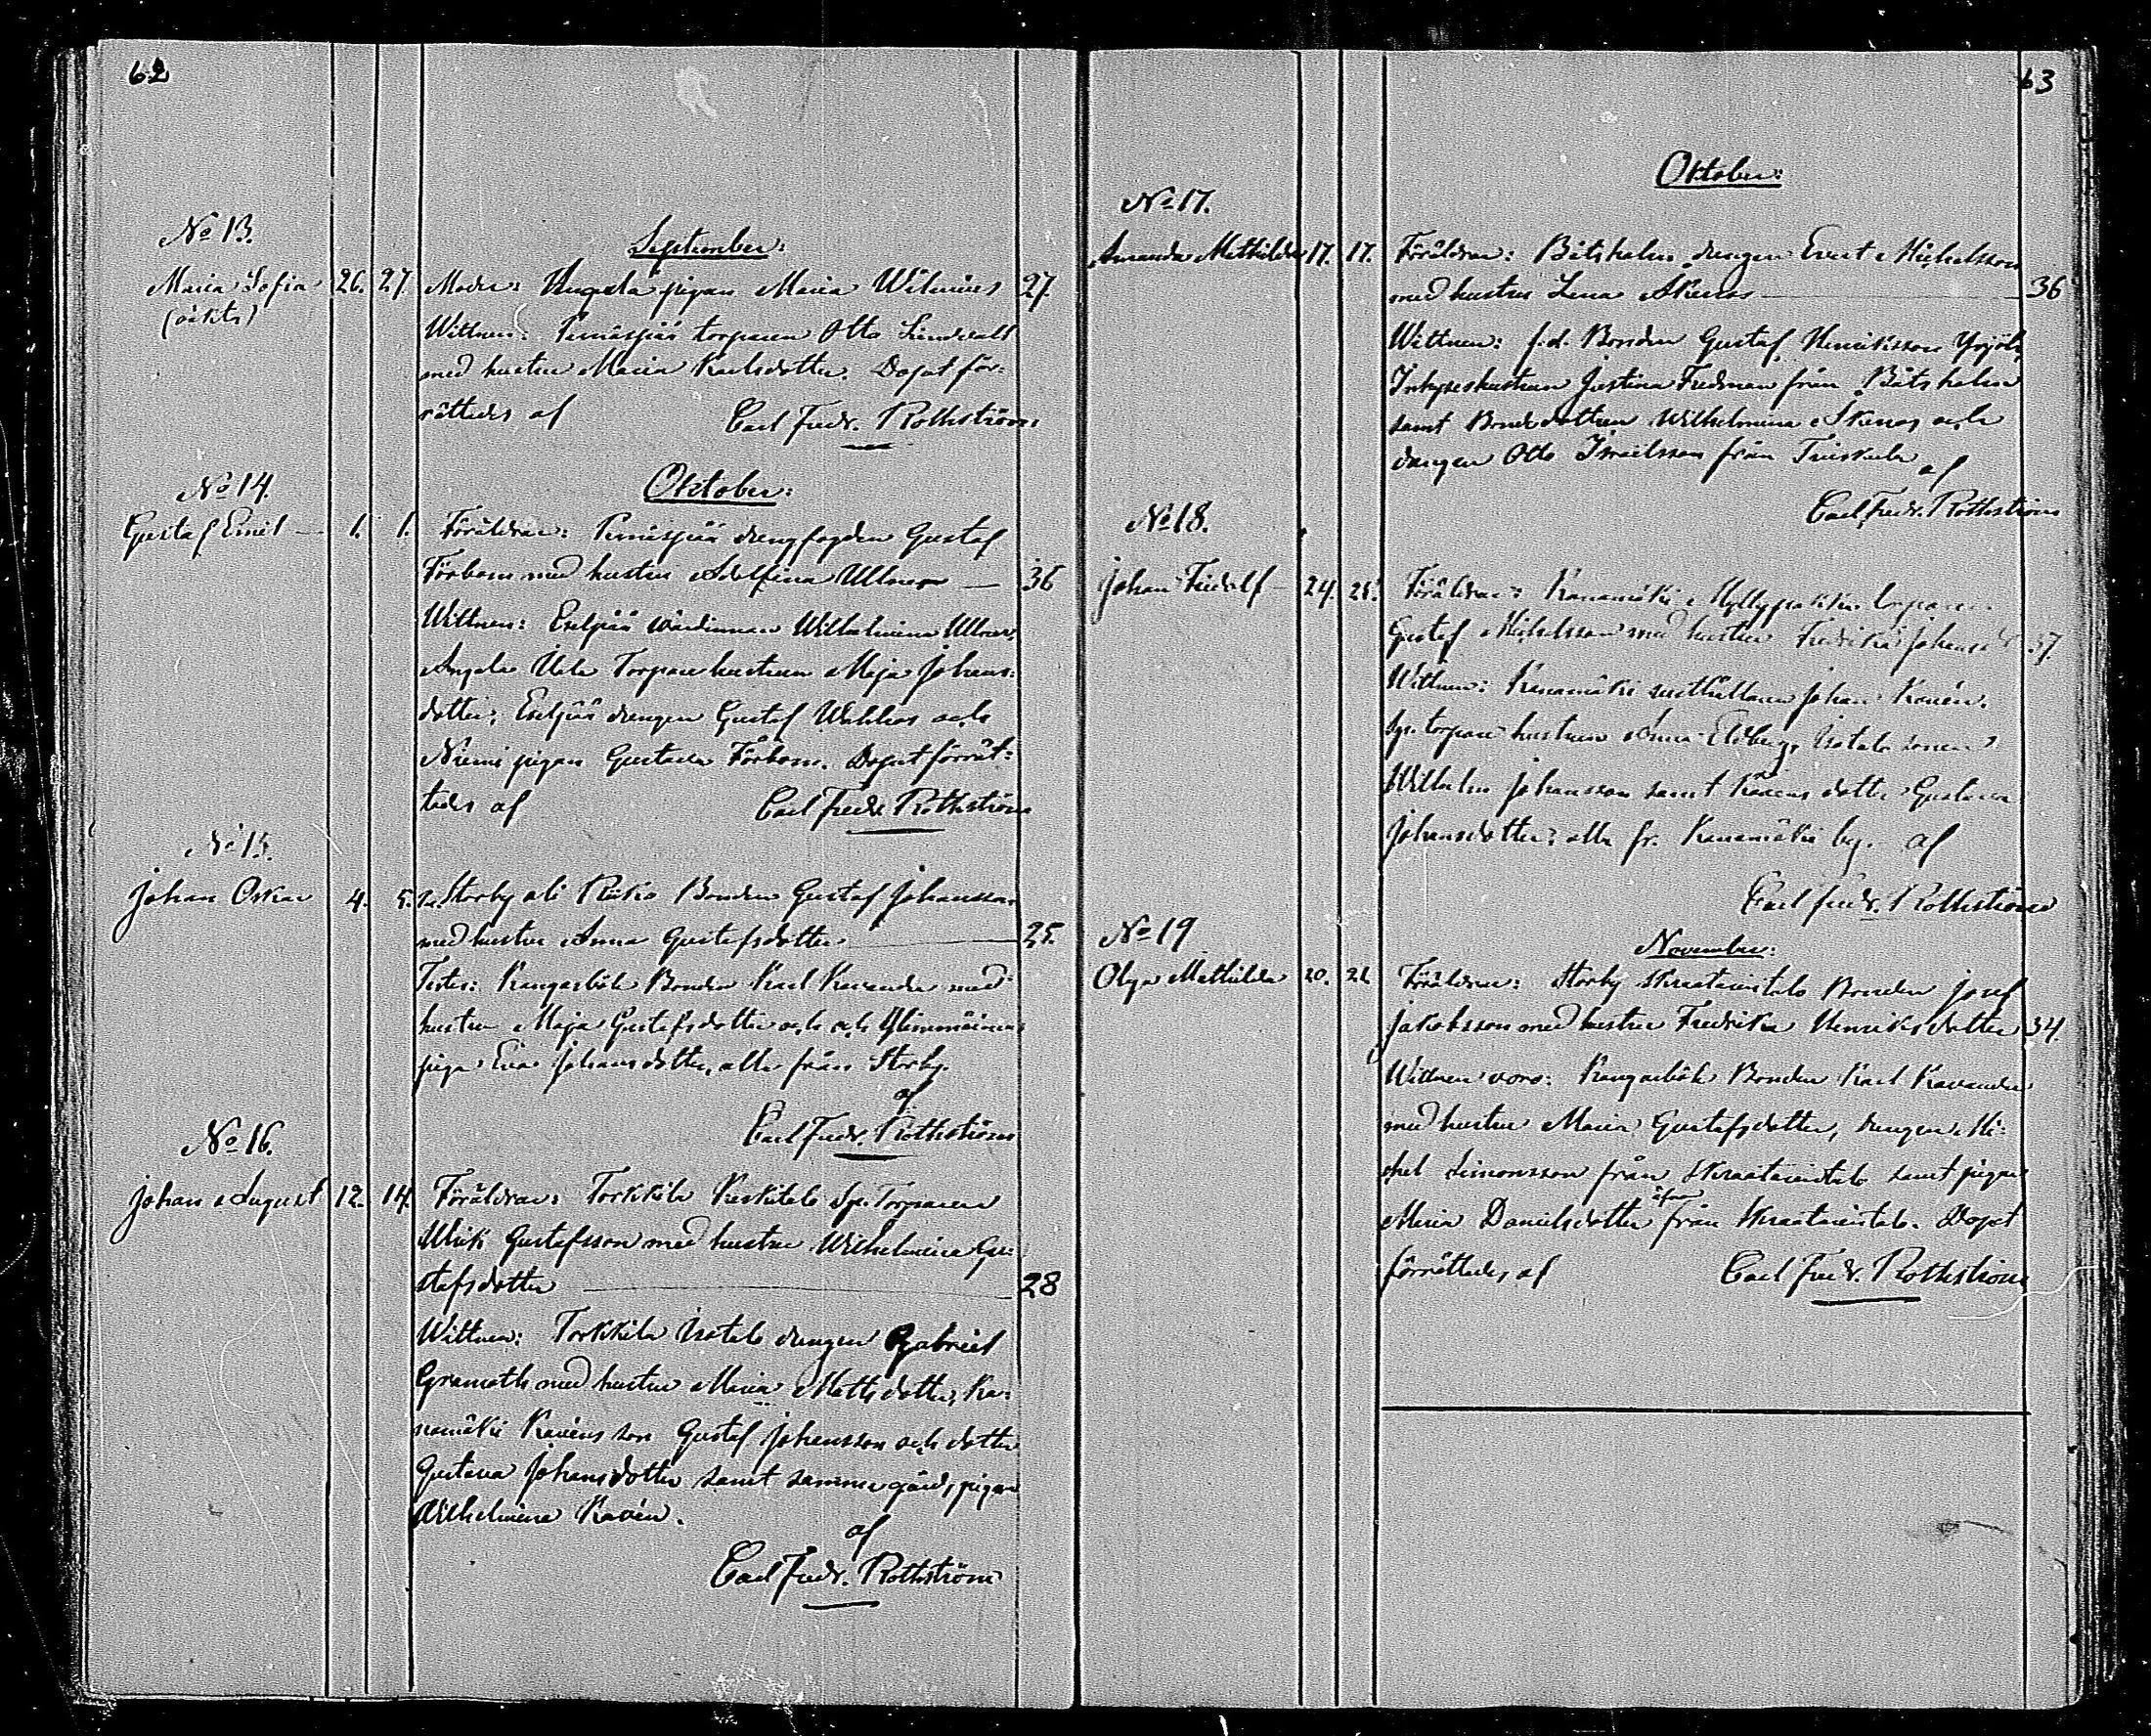 62
No 13.
September:
Maria Sofia 26. 27. Moder: Angela pigan Maria Wilenius 27.
(oäkta)
Wittnen: Penäsjää torparen Otto Lindwall
med hustru Maria Karlsdotter. Dopet för-
rättades af Carl Fredr. Rothström
No 14.
Oktober:
Gustaf Emil 1. 1. Föräldrar: drengfogden Gustaf
Förbom med hustru Adolfina Ullner 36
Wittnen: värdinnan Wilhelmina Ullner,
Angela Torpare hustrun Maja Johans-
dotter, drengen Gustaf och
Niemi pigan Gustava Förbom. Dopet förrät-
tades af Carl Fredr. Rothström
No 15.
Johan Oskar 4. 5. Storby ali Bonden Gustaf Johansson
med hustru Anna Gustafsdotter 25.
Testes: Bonden Karl Kavander med
hustru Maja Gustafsdotter och
piga Eva Johansdotter, alla från Storby.
af
Carl Fredr. Rothström
No 16.
Johan August 12. 14. Föräldrar: Torkkila Keskitalo Sp. Torparen
Ulrik Gustafsson med hustru Wilhelmina Gu-
stafsdotter 28
Wittnen: Torkkila Isotalo drengen Gabriel
Gramath med hustru Maria Mattsdotter, Ka-
namäki Kavéns son Gustaf Johansson och dotter
Gustava Johansdotter samt samma gård, pigan
Wilhelmina Kavén.
af
Carl Fredr. Rothström
63
Oktober:
No 17.
Amanda Mathilda 17. 17. Föräldrar: Båtsholm drengen Evert Michelsson
med hustru Lena 36
Wittnen: f.d. Bonden Gustaf Henriksson
Inhyseshustrun Justina Fredman från Båtsholm
samt Bondedottren Wilhelmina och
drengen Otto Israelsson från
af
Carl Fredr. Rothström
No 18.
Johan Fridolf 24. 25. Föräldrar: Kanamäki torparen
Gustaf Michelsson med hustru Fredrika Johansd. 37.
Wittnen: Kanamäki Johan Kavén,
Sp. torpare hustrun Anna Isotalo sonen
Wilhelm Johansson samt Kavéns dotter Gustava
Johansdotter, alla fr. Kanamäki by. af
Carl Fredr. Rothström
No 19
November:
Olga Mathilda 20. 21. Föräldrar: Storby Bonden Josef
Jakobsson med hustru Fredrika Henriksdotter 34.
Wittnen voro: Bonden Karl Kavander
med hustru Maria Gustafsdotter, drengen Mi-
chel Simonsson från samt pigan
Maria Danielsdotter äfven från Dopet
förrättades af Carl Fredr. Rothström